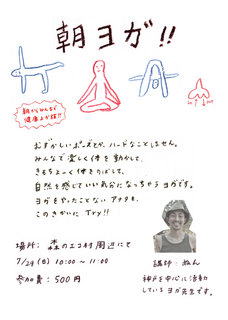 朝ヨガ!!
朝からみんなで
健康よが族!!
むずかしいポーズとか、ハードなことしません。
みんなで楽しく体を動かして、
きもちよーく体をのばして、
自然を感じていい気分になっちゃうヨガです。
ヨガをやったことないアナタも、
このきかいに Try!!
場所: 森のエコ村周辺にて
7/29(日) 10:00〜11:00
参加費: 500円
講師:
神戸を中心に活動
しているヨガ先生です。